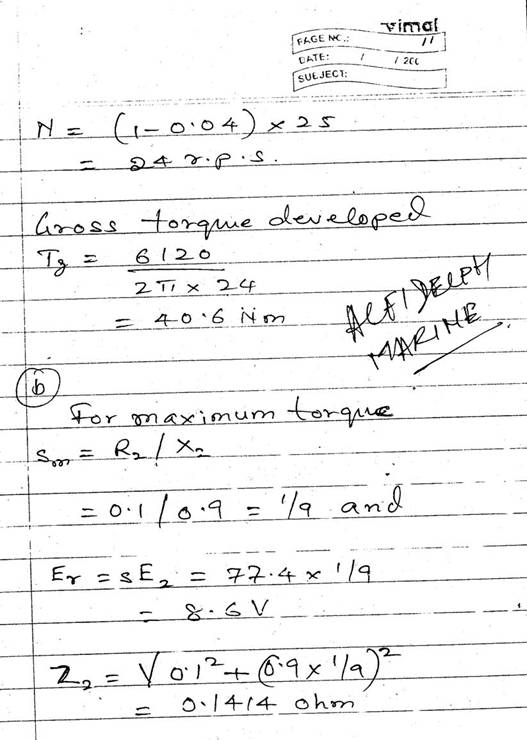 vimal
PAGE NO.: 11
DATE: / / 200
SUBJECT:
N = (1-0.04) × 25
= 24 r.p.s.
Gross torque developed
Tg = 6120
2π × 24
= 40.6 Nm
ALFIDELPH
MARINE
(b)
For maximum torque
Sm = R₂ / X₂
= 0.1 / 0.9 = 1/9 and
Er = sE₂ = 77.4 × 1/9
= 8.6 V
Z₂ = √ 0.1² + (0.9 × 1/9)²
= 0.1414 ohm